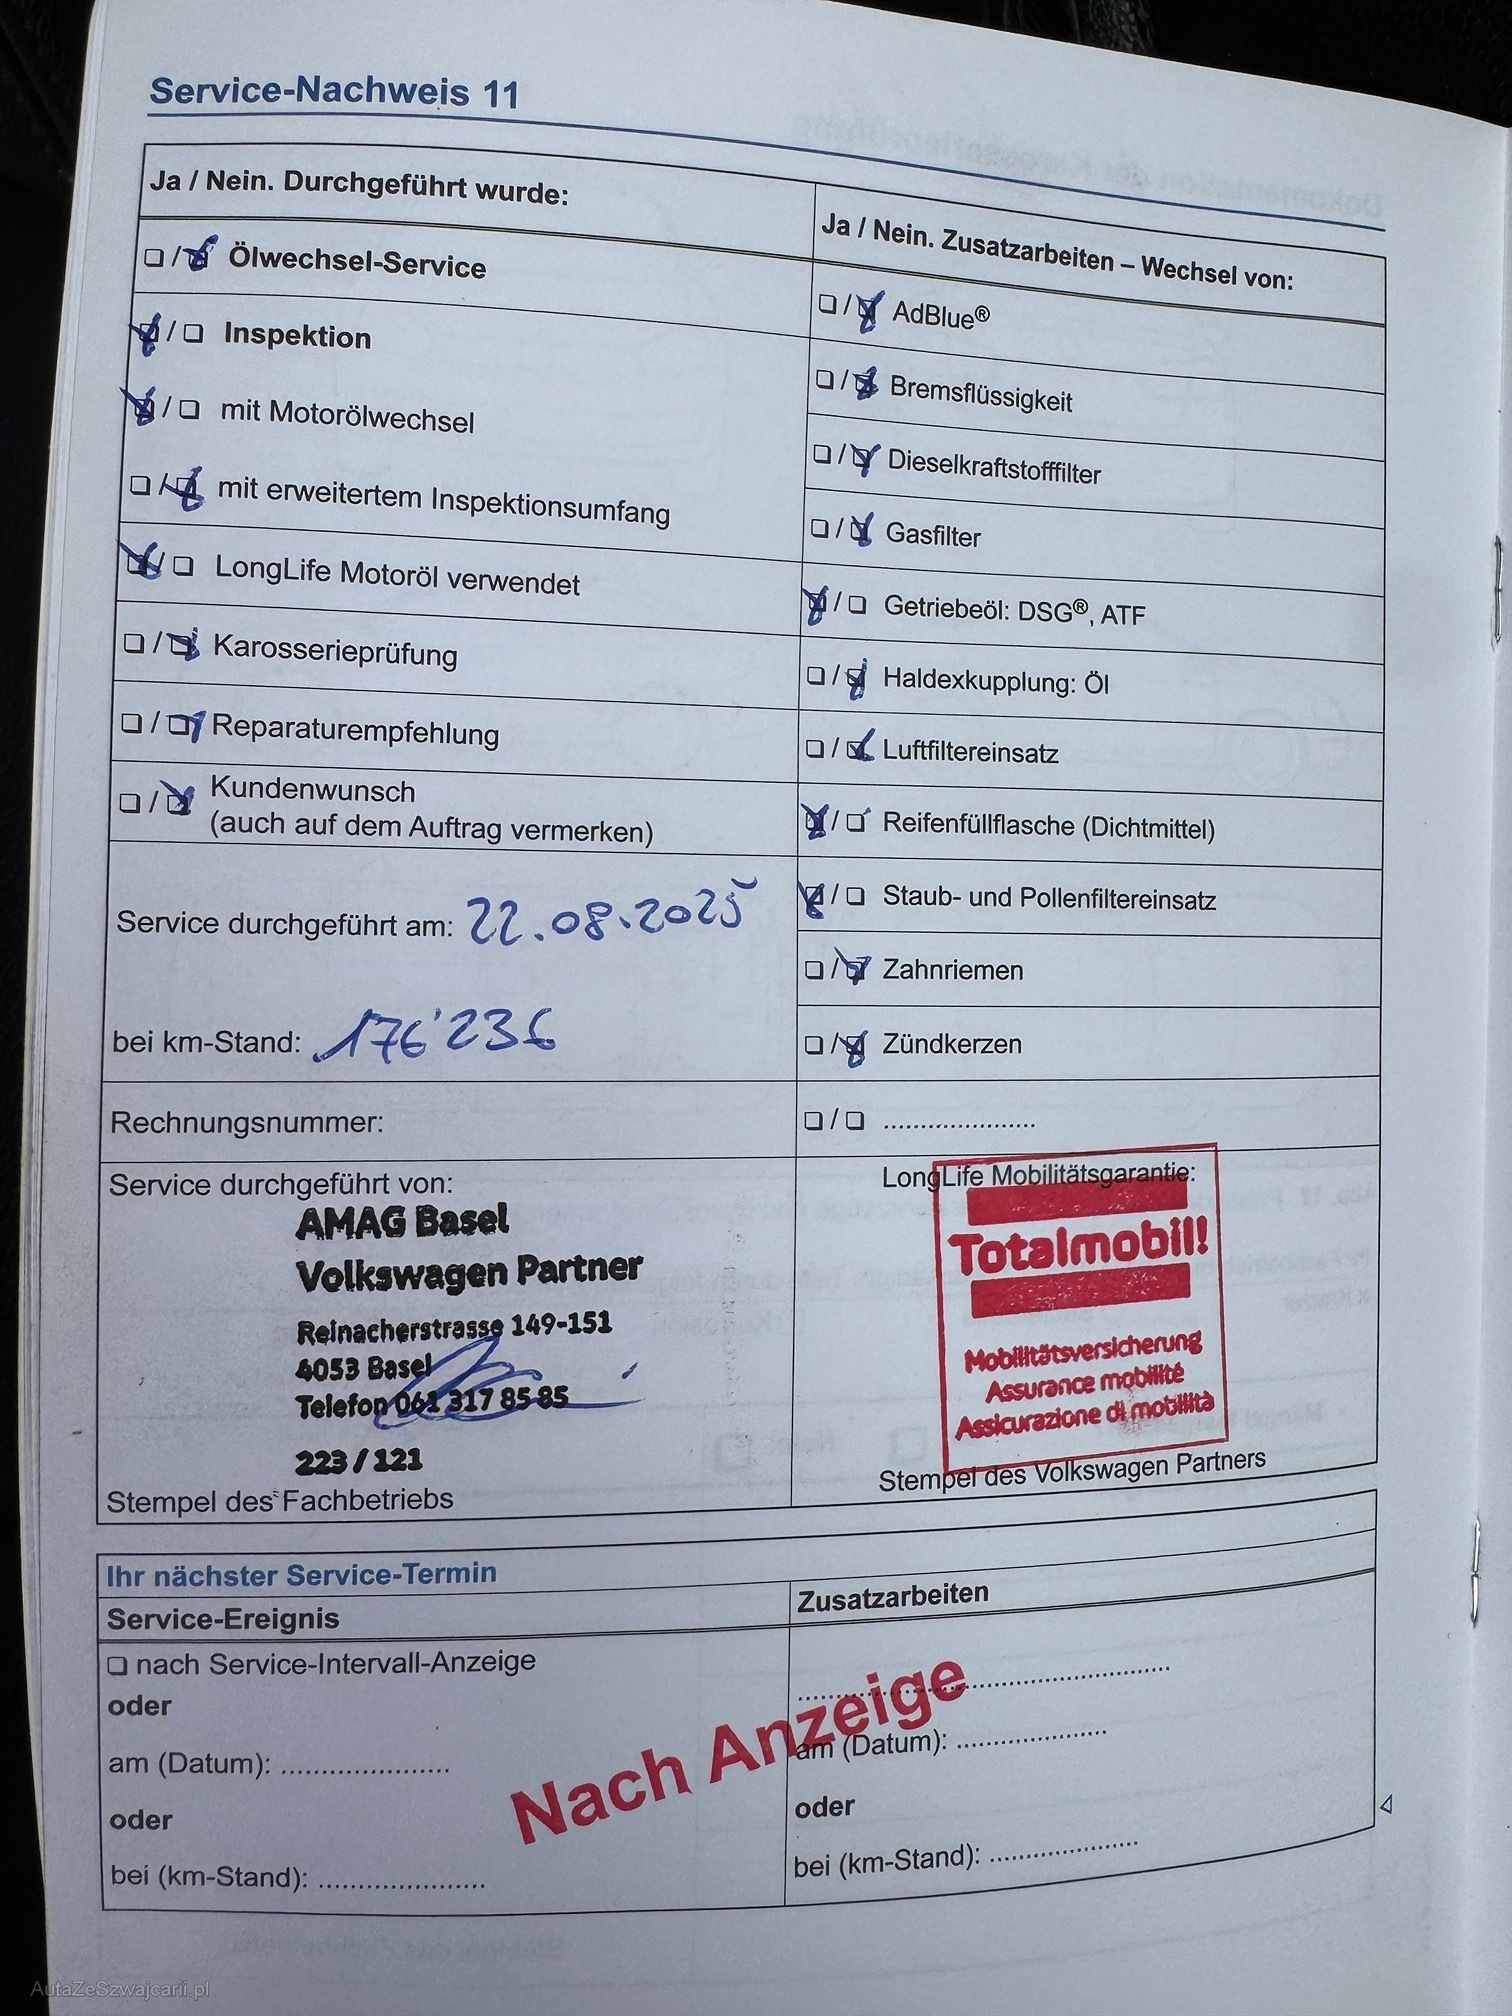 Service-Nachweis 11
Ja / Nein. Durchgeführt wurde:
❏ / ❏ Ölwechsel-Service
❏ / ❏ Inspektion
❏ / ❏ mit Motorölwechsel
❏ / ❏ mit erweitertem Inspektionsumfang
❏ / ❏ LongLife Motoröl verwendet
❏ / ❏ Karosserieprüfung
❏ / ❏ Reparaturempfehlung
❏ / ❏ Kundenwunsch
(auch auf dem Auftrag vermerken)
Service durchgeführt am: 22.08.2025
bei km-Stand: 176'236
Rechnungsnummer:
Service durchgeführt von:
AMAG Basel
Volkswagen Partner
Reinacherstrasse 149-151
4053 Basel
Telefon 061 317 85 85
223 / 121
Stempel des Fachbetriebs
Ja / Nein. Zusatzarbeiten – Wechsel von:
❏ / ❏ AdBlue®
❏ / ❏ Bremsflüssigkeit
❏ / ❏ Dieselkraftstofffilter
❏ / ❏ Gasfilter
❏ / ❏ Getriebeöl: DSG®, ATF
❏ / ❏ Haldexkupplung: Öl
❏ / ❏ Luftfiltereinsatz
❏ / ❏ Reifenfüllflasche (Dichtmittel)
❏ / ❏ Staub- und Pollenfiltereinsatz
❏ / ❏ Zahnriemen
❏ / ❏ Zündkerzen
❏ / ❏ ......................
LongLife Mobilitätsgarantie:
Totalmobil!
Mobilitätsversicherung
Assurance mobilité
Assicurazione di mobilità
Stempel des Volkswagen Partners
Ihr nächster Service-Termin
Service-Ereignis
❏ nach Service-Intervall-Anzeige
oder
am (Datum): ......................
oder
bei (km-Stand): ......................
Zusatzarbeiten
......................
am (Datum): ......................
oder
bei (km-Stand): ......................
Nach Anzeige
AutaZeSzwajcarii.pl